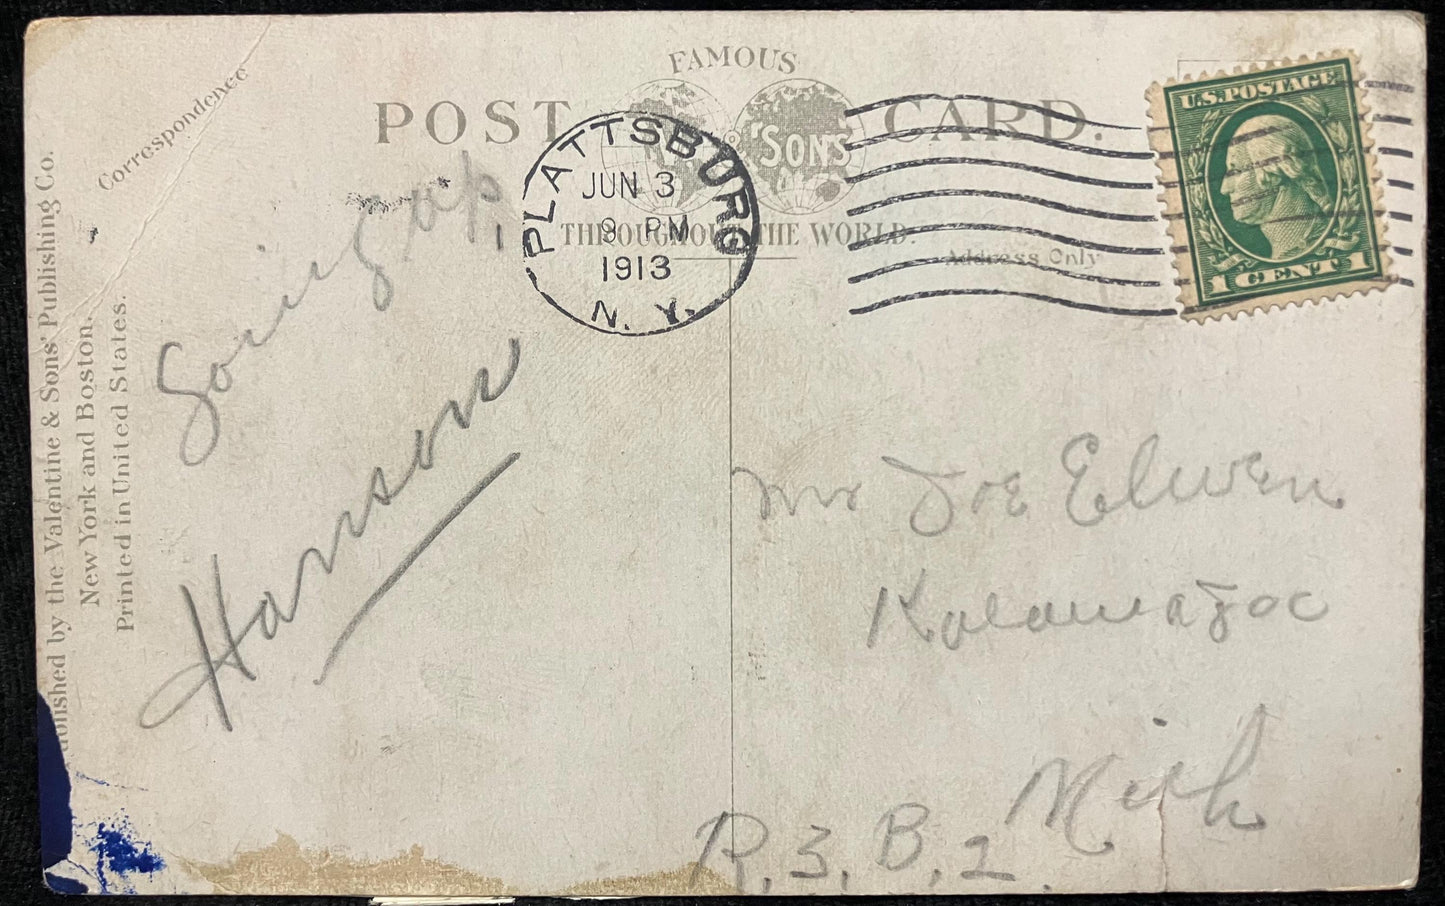 FAMOUS
POST CARD.
'SONS
THROUGHOUT THE WORLD.
Correspondence
Address Only
PLATTSBURG
JUN 3
8 PM
1913
N. Y.
U.S. POSTAGE
1 CENT 1
Going up
Harrison
Mr Joe Elwen
Kalamazoo
Mich
R. 3, B, 2.
Published by the Valentine & Sons' Publishing Co.
New York and Boston.
Printed in United States.